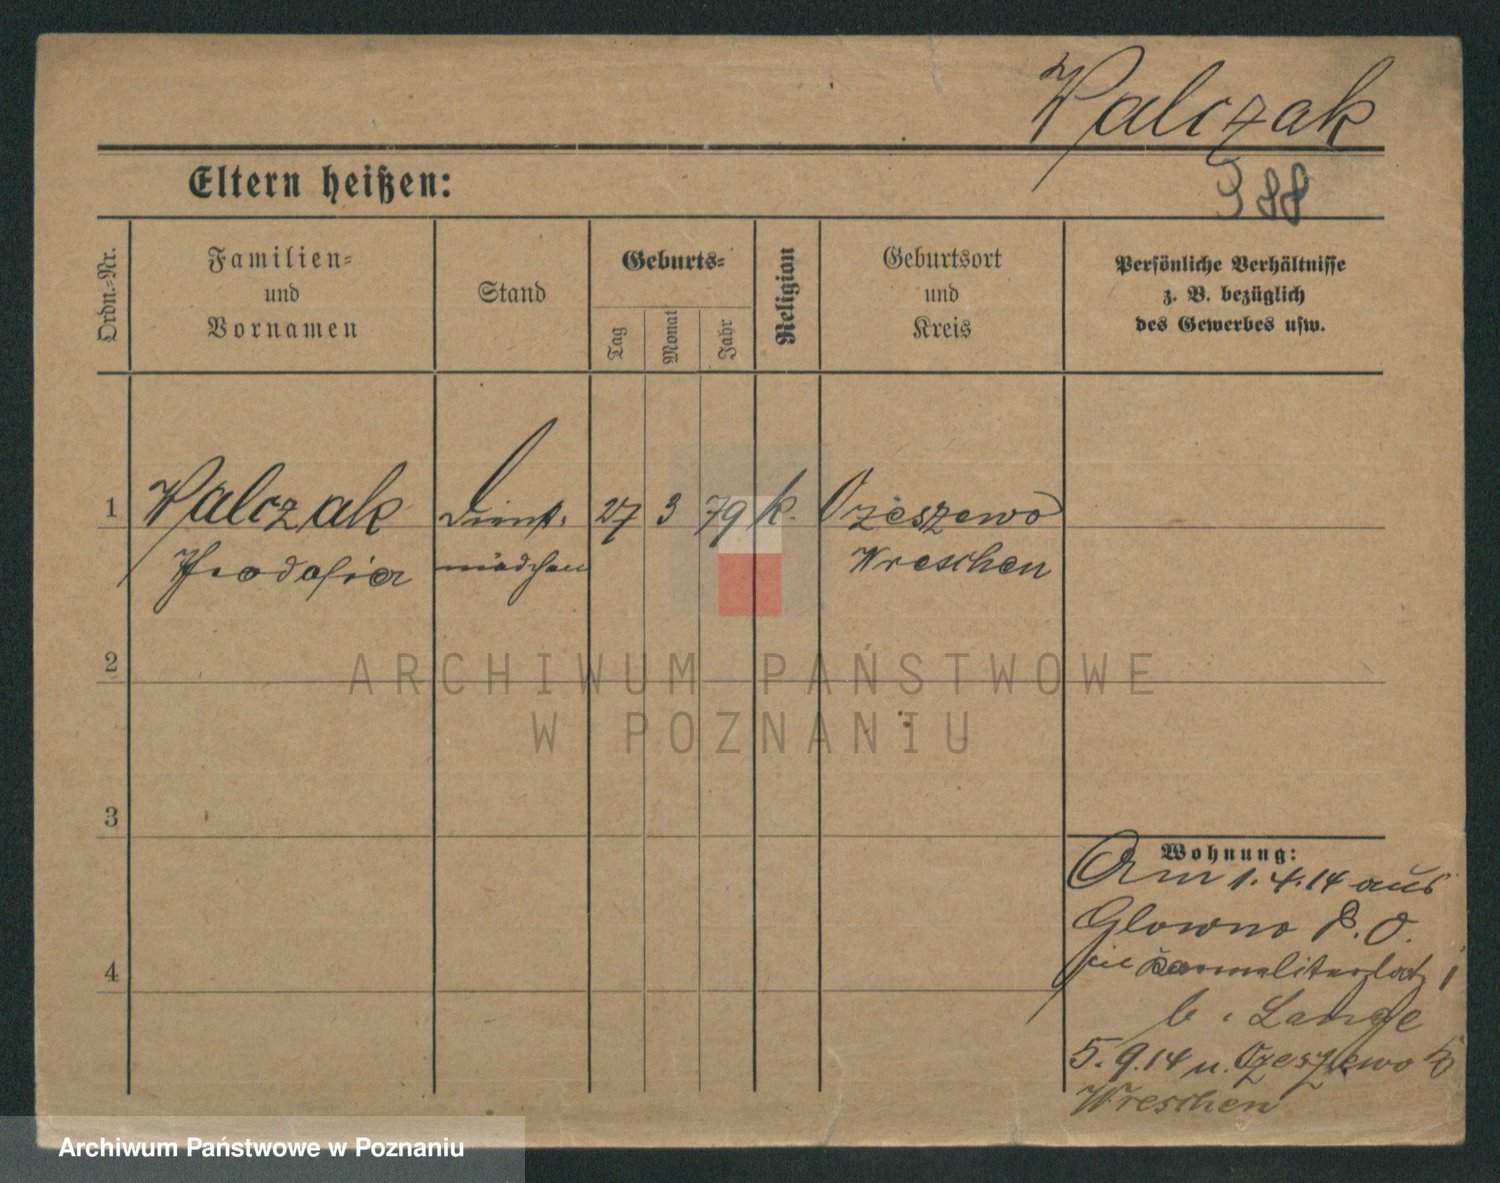 Walczak
988
Eltern heißen:
Ordn.-Nr.
Familien-
und
Vornamen
Stand
Geburts-
Tag
Monat
Jahr
Religion
Geburtsort
und
Kreis
Persönliche Verhältnisse
z. B. bezüglich
des Gewerbes usw.
1
Walczak
Dienst-
27
3
79
k.
Ozeszewo
mädchen
Wreschen
2
ARCHIWUM PAŃSTWOWE
W POZNANIU
3
Wohnung:
Am 1.4.14 aus
Glowno P. O.
4
b. Lange
5.9.14 n. Ozeszewo
Wreschen
Archiwum Państwowe w Poznaniu